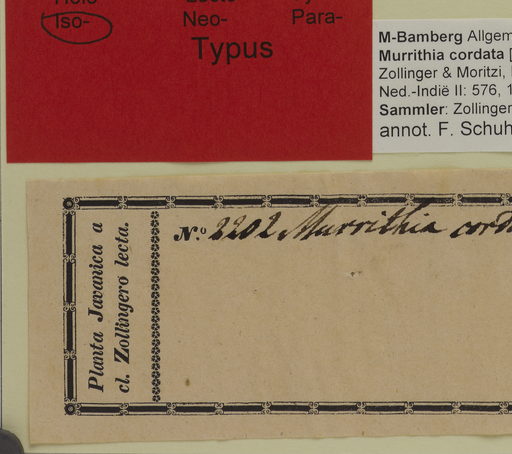 Iso-
Neo- Para-
Typus
M-Bamberg Allgem
Murrithia cordata [
Zollinger & Moritzi,
Ned.-Indië II: 576, 1
Sammler: Zollinger
annot. F. Schuh
Planta Javanica a
cl. Zollingero lecta.
N.º 2202 Murrithia cord